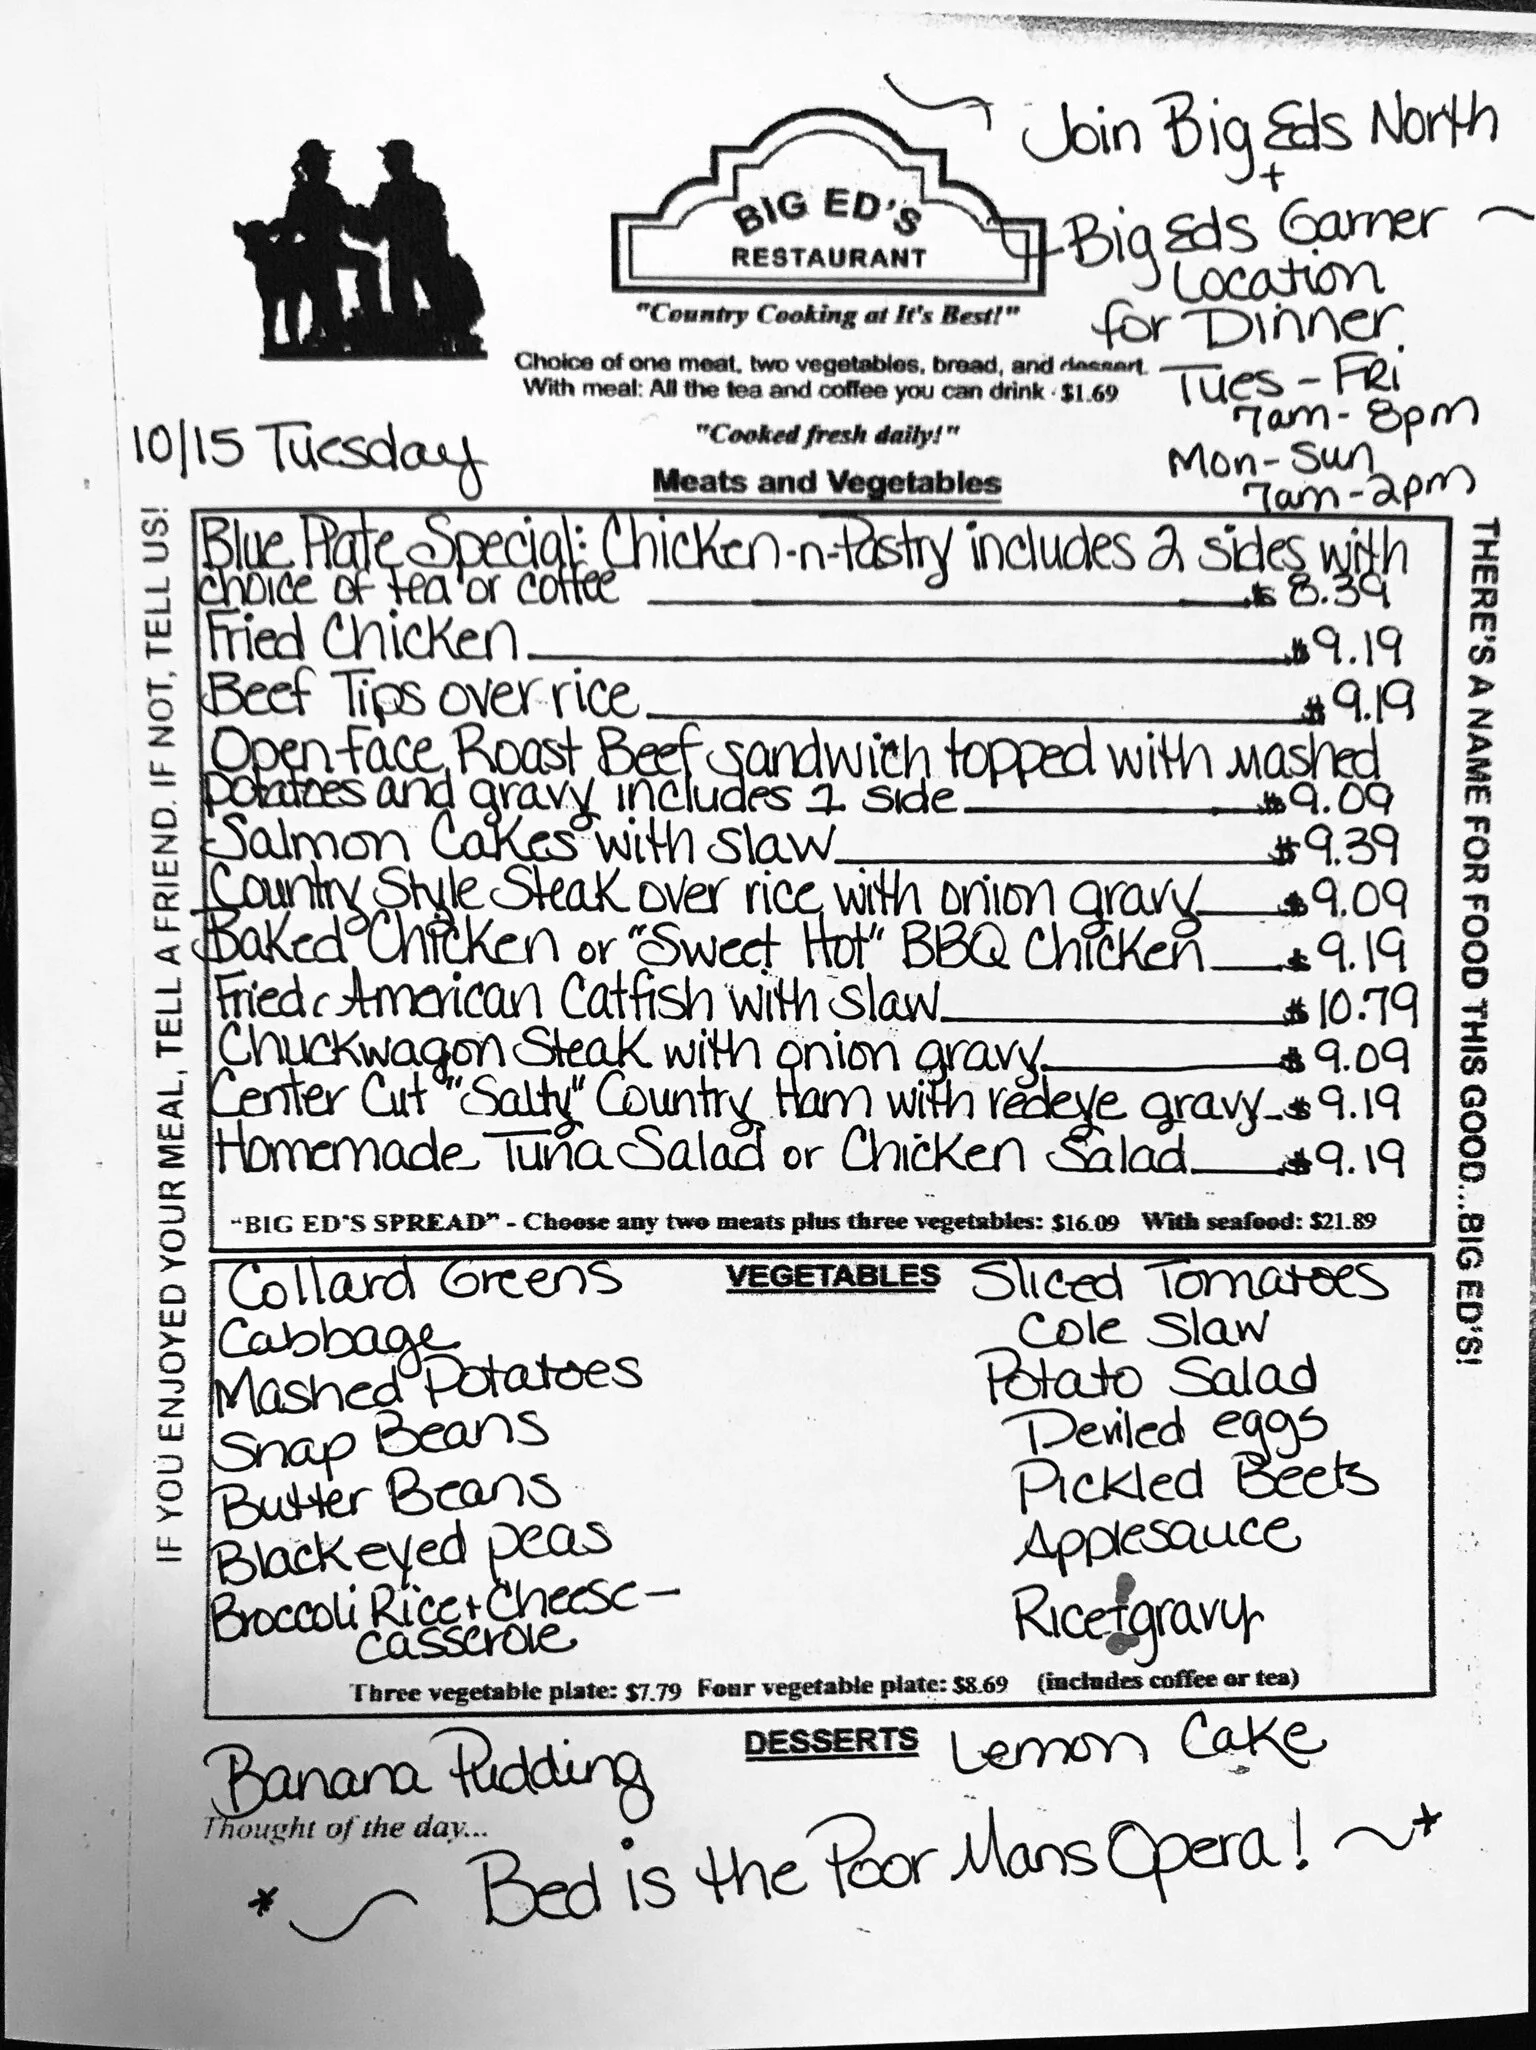 Join Big Eds North
+
Big Eds Garner
Location
for Dinner.
Tues - Fri
7am - 8pm
Mon - Sun
7am - 2pm
BIG ED'S
RESTAURANT
"Country Cooking at It's Best!"
Choice of one meat, two vegetables, bread, and dessert.
With meal: All the tea and coffee you can drink · $1.69
"Cooked fresh daily!"
10/15 Tuesday
Meats and Vegetables
IF YOU ENJOYED YOUR MEAL, TELL A FRIEND. IF NOT, TELL US!
THERE'S A NAME FOR FOOD THIS GOOD...BIG ED'S!
Blue Plate Special: Chicken-n-Pastry includes 2 sides with
choice of tea or coffee $8.39
Fried Chicken $9.19
Beef Tips over rice $9.19
Open-face Roast Beef sandwich topped with mashed
potatoes and gravy includes 1 side $9.09
Salmon Cakes with slaw $9.39
Country Style Steak over rice with onion gravy $9.09
Baked Chicken or "Sweet Hot" BBQ Chicken $9.19
Fried American Catfish with slaw $10.79
Chuckwagon Steak with onion gravy $9.09
Center Cut "Salty" Country Ham with redeye gravy $9.19
Homemade Tuna Salad or Chicken Salad $9.19
"BIG ED'S SPREAD" - Choose any two meats plus three vegetables: $16.09 With seafood: $21.89
VEGETABLES
Collard Greens
Cabbage
Mashed Potatoes
Snap Beans
Butter Beans
Blackeyed peas
Broccoli Rice + Cheese -
casserole
Sliced Tomatoes
Cole Slaw
Potato Salad
Deviled eggs
Pickled Beets
Applesauce
Rice + gravy
Three vegetable plate: $7.79 Four vegetable plate: $8.69 (includes coffee or tea)
DESSERTS
Banana Pudding
Lemon Cake
Thought of the day...
* ~ Bed is the Poor Mans Opera! ~ *